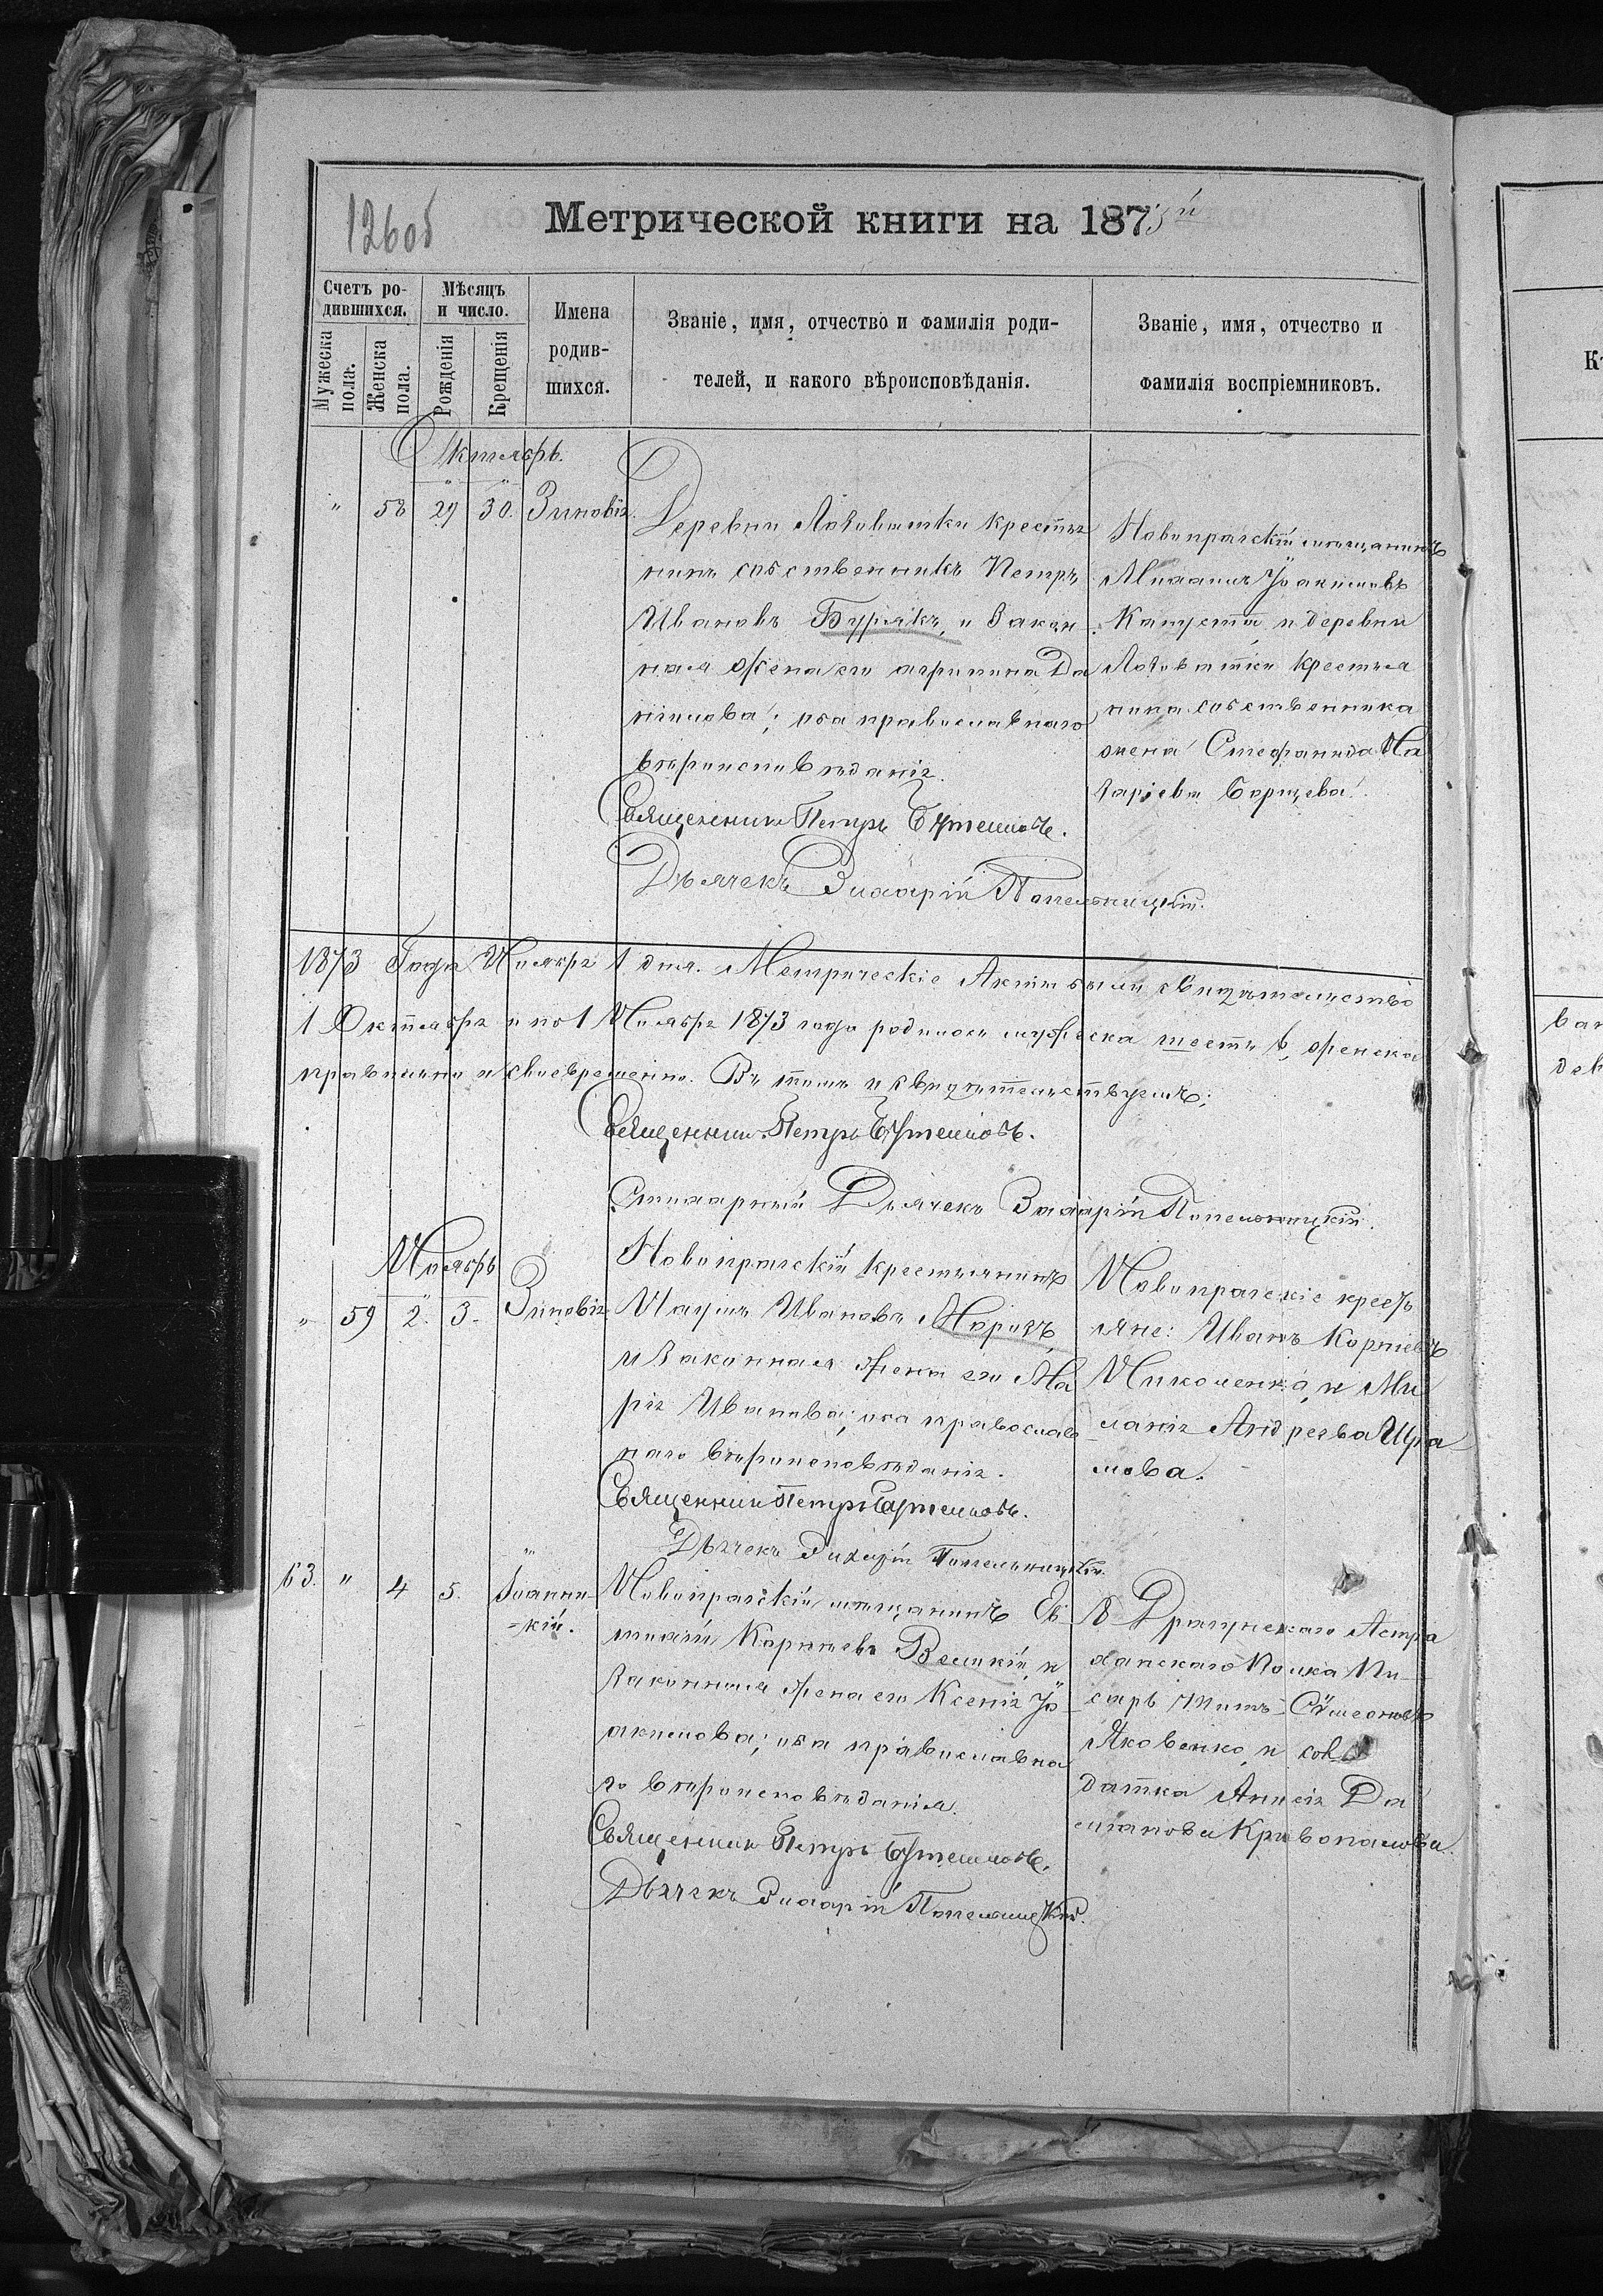 12605
Метрической книги на 1873й
Счетъ родившихся.
Мужеска пола.
Женска пола.
Мѣсяцъ и число.
Рожденія
Крещенія
Имена родив-
шихся.
Званіе, имя, отчество и фамилія роди-
телей, и какого вѣроисповѣданія.
Званіе, имя, отчество и
фамилія воспріемниковъ.
Октябрь.
" 58 29 30. Зиновія.
Деревни Лозоватки крестья
нинъ собственникъ Петръ
Ивановъ Бурякъ, и закон
ная жена его агрипина Да
ніилова; оба православнаго
вѣроисповѣданія.
Священникъ Петръ
Дьячекъ Захарій Попельницкій.
Новопражскій мѣщанинъ
Михаилъ Іоакимовъ
Капуста, и деревни
Лозоватки крестья
нина собственника
жена Стефанида На
заріева Борщева.
1873 Года Ноября 1 дня. Метрическіе Акты были свидѣтельство
1 Октября и по 1 Ноября 1873 года родилось мужеска шесть 6, женска
правильно и своевременно. Въ томъ и свидѣтельствуемъ:
Священникъ Петръ
Дьячекъ Захарій Попельницкій.
Ноябрь
" 59 2. 3. Зиновія.
Новопражскій крестьянинъ
Наумъ Ивановъ Морозъ,
и законная жена его Ма
рія Иванова; оба православ
наго вѣроисповѣданія.
Священникъ Петръ
Дьячекъ Захарій Попельницкій.
Новопражскіе кресть
яне: Иванъ Корніевъ
Николенко, и Ме
ланія Андреева
63. " 4 5. Іоанни-
=кій.
Новопражскій мѣщанинъ Ев
Великій, и
законная жена его Ксенія Іо
акимова; оба православна
го вѣроисповѣданія.
Священникъ Петръ
Дьячекъ Захарій Попельницкій.
8 Драгунскаго Астра
ханскаго Полка Пи-
сарь Титъ Сѵмеоновъ
Яковенко, и сол
датка Анисія Да
міанова Кривопалова.
К
ван
дев